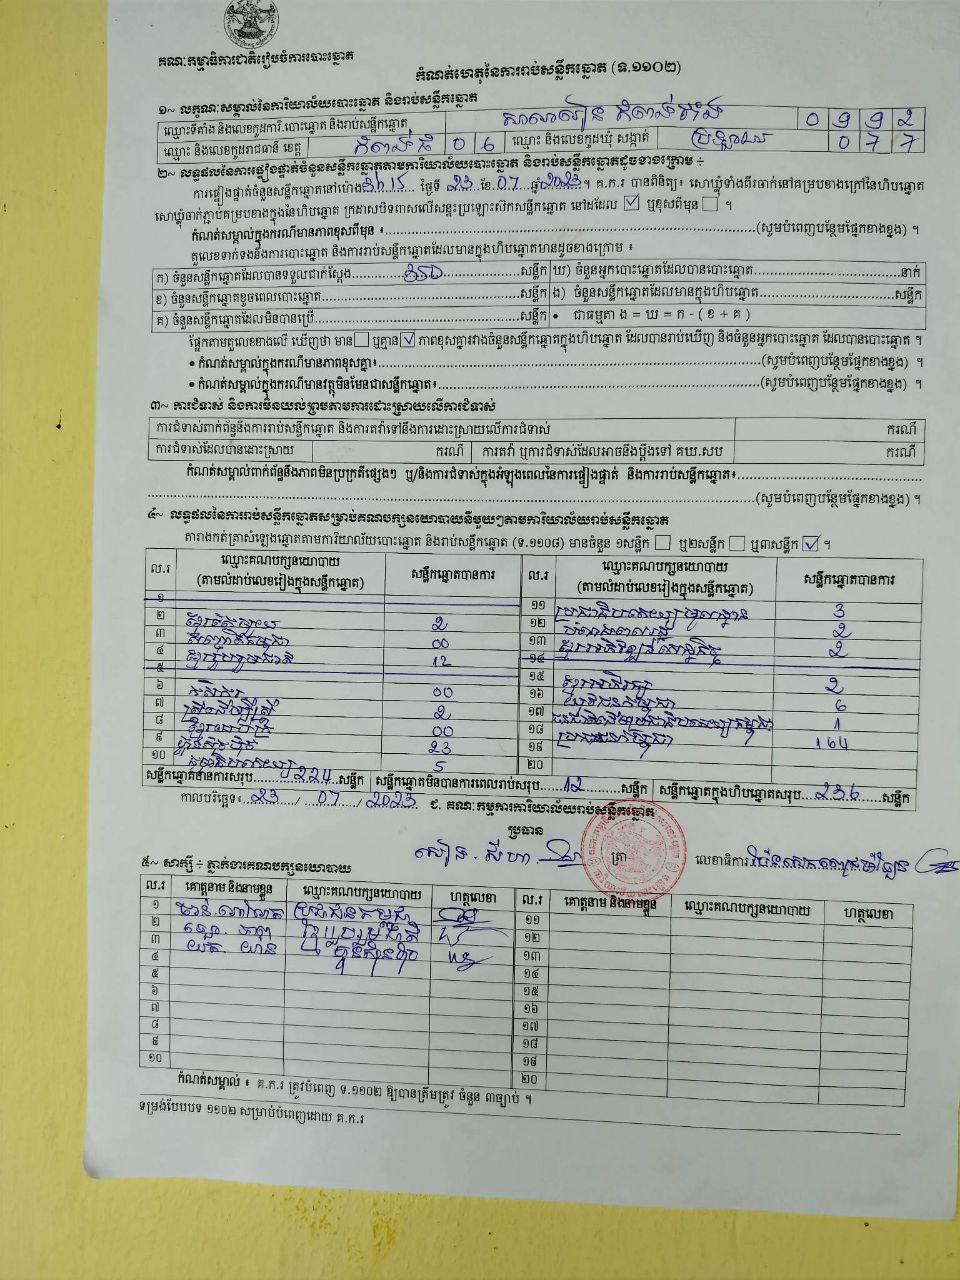 គណៈកម្មាធិការជាតិរៀបចំការបោះឆ្នោត
កំណត់ហេតុនៃការរាប់សន្លឹកឆ្នោត (ទ.១១០២)
១~ លក្ខណៈសម្គាល់នៃការិយាល័យបោះឆ្នោត និងរាប់សន្លឹកឆ្នោត
ឈ្មោះទីតាំង និងលេខកូដការិ.បោះឆ្នោត និងរាប់សន្លឹកឆ្នោត 0 9 9 2
ឈ្មោះ និងលេខកូដរាជធានី ខេត្ត កំពង់ធំ 0 6 ឈ្មោះ និងលេខកូដឃុំ សង្កាត់ 0 7 7
២~ លទ្ធផលនៃការផ្ទៀងផ្ទាត់ចំនួនសន្លឹកឆ្នោតតាមការិយាល័យបោះឆ្នោត និងរាប់សន្លឹកឆ្នោតដូចខាងក្រោម ÷
ការផ្ទៀងផ្ទាត់ចំនួនសន្លឹកឆ្នោតនៅម៉ោង 3h15 ថ្ងៃទី 23 ខែ 07 ឆ្នាំ 2023 ។ គ.ក.រ បានពិនិត្យ៖ សោឃ្លុំទាំងពីរចាក់នៅគម្របខាងក្រៅនៃហិបឆ្នោត
សោឃ្លុំចាក់ភ្ជាប់គម្របខាងក្នុងនៃហិបឆ្នោត ក្រដាសបិទពាសលើសន្ទះប្រឡោះស៊កសន្លឹកឆ្នោត នៅដដែល ☑ ឬខុសពីមុន ☐ ។
កំណត់សម្គាល់ក្នុងករណីមានភាពខុសពីមុន ៖ (សូមបំពេញបន្ថែមផ្នែកខាងខ្នង) ។
តួលេខទាក់ទងនឹងការបោះឆ្នោត និងការរាប់សន្លឹកឆ្នោតដែលមានក្នុងហិបឆ្នោតមានដូចខាងក្រោម ៖
ក) ចំនួនសន្លឹកឆ្នោតដែលបានទទួលជាក់ស្តែង 350 សន្លឹក ឃ) ចំនួនអ្នកបោះឆ្នោតដែលបានបោះឆ្នោត នាក់
ខ) ចំនួនសន្លឹកឆ្នោតខូចពេលបោះឆ្នោត សន្លឹក ង) ចំនួនសន្លឹកឆ្នោតដែលមានក្នុងហិបឆ្នោត សន្លឹក
គ) ចំនួនសន្លឹកឆ្នោតដែលមិនបានប្រើ សន្លឹក • ជាធម្មតា ង = ឃ = ក - ( ខ + គ )
ផ្អែកតាមតួលេខខាងលើ ឃើញថា មាន ☐ ឬគ្មាន ☑ ភាពខុសគ្នារវាងចំនួនសន្លឹកឆ្នោតក្នុងហិបឆ្នោត ដែលបានរាប់ឃើញ និងចំនួនអ្នកបោះឆ្នោត ដែលបានបោះឆ្នោត ។
• កំណត់សម្គាល់ក្នុងករណីមានភាពខុសគ្នា៖ (សូមបំពេញបន្ថែមផ្នែកខាងខ្នង) ។
• កំណត់សម្គាល់ក្នុងករណីមានវត្ថុមិនមែនជាសន្លឹកឆ្នោត៖ (សូមបំពេញបន្ថែមផ្នែកខាងខ្នង) ។
៣~ ការជំទាស់ និងការមិនយល់ព្រមតាមការដោះស្រាយលើការជំទាស់
ការជំទាស់ពាក់ព័ន្ធនឹងការរាប់សន្លឹកឆ្នោត និងការតវ៉ាទៅនឹងការដោះស្រាយលើការជំទាស់ ករណី
ការជំទាស់ដែលបានដោះស្រាយ ករណី ការតវ៉ា ឬការជំទាស់ដែលអាចនឹងប្តឹងទៅ គឃ.សប ករណី
កំណត់សម្គាល់ពាក់ព័ន្ធនឹងភាពមិនប្រក្រតីផ្សេងៗ ឬ/និងការជំទាស់ក្នុងអំឡុងពេលនៃការផ្ទៀងផ្ទាត់ និងការរាប់សន្លឹកឆ្នោត៖
(សូមបំពេញបន្ថែមផ្នែកខាងខ្នង) ។
៤~ លទ្ធផលនៃការរាប់សន្លឹកឆ្នោតសម្រាប់គណបក្សនយោបាយនីមួយៗតាមការិយាល័យរាប់សន្លឹកឆ្នោត
តារាងកត់ត្រាសំឡេងឆ្នោតតាមការិយាល័យបោះឆ្នោត និងរាប់សន្លឹកឆ្នោត (ទ.១១០៨) មានចំនួន ១សន្លឹក ☐ ឬ២សន្លឹក ☐ ឬ៣សន្លឹក ☑ ។
ល.រ ឈ្មោះគណបក្សនយោបាយ (តាមលំដាប់លេខរៀងក្នុងសន្លឹកឆ្នោត) សន្លឹកឆ្នោតបានការ ល.រ ឈ្មោះគណបក្សនយោបាយ (តាមលំដាប់លេខរៀងក្នុងសន្លឹកឆ្នោត) សន្លឹកឆ្នោតបានការ
១ ១១ ប្រជាធិបតេយ្យមូលដ្ឋាន 3
២ 2 ១២ 2
៣ 00 ១៣ 2
៤ ខ្មែររួបរួមជាតិ 12 ១៤
៥ ១៥ ខ្មែរអភិរក្ស 2
៦ 00 ១៦ យុវជនកម្ពុជា 6
៧ 2 ១៧ 1
៨ 00 ១៨ ប្រជាជនកម្ពុជា 164
៩ ហ្វ៊ុនស៊ិនប៉ិច 23 ១៩
១០ 5 ២០
សន្លឹកឆ្នោតបានការសរុប 224 សន្លឹក សន្លឹកឆ្នោតមិនបានការពេលរាប់សរុប 12 សន្លឹក សន្លឹកឆ្នោតក្នុងហិបឆ្នោតសរុប 236 សន្លឹក
កាលបរិច្ឆេទ៖ 23 / 07 / 2023 ជ. គណៈកម្មការការិយាល័យរាប់សន្លឹកឆ្នោត
ប្រធាន
ត្រា លេខាធិការ
៥~ សាក្សី ÷ ភ្នាក់ងារគណបក្សនយោបាយ
ល.រ គោត្តនាម និងនាមខ្លួន ឈ្មោះគណបក្សនយោបាយ ហត្ថលេខា ល.រ គោត្តនាម និងនាមខ្លួន ឈ្មោះគណបក្សនយោបាយ ហត្ថលេខា
១ ប្រជាជនកម្ពុជា ១១
២ ខ្មែររួបរួមជាតិ ១២
៣ ហ្វ៊ុនស៊ិនប៉ិច ១៣
៤ ១៤
៥ ១៥
៦ ១៦
៧ ១៧
៨ ១៨
៩ ១៩
១០ ២០
កំណត់សម្គាល់ ៖ គ.ក.រ ត្រូវបំពេញ ទ.១១០២ ឱ្យបានត្រឹមត្រូវ ចំនួន ៣ច្បាប់ ។
ទម្រង់បែបបទ ១១០២ សម្រាប់បំពេញដោយ គ.ក.រ